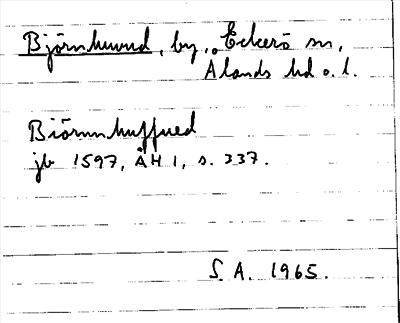 Björnhuvud, by, Eckerö sn,
Ålands hd o. l.
Biörnnhuffued
jb 1597, ÅH 1, s. 337.
S. A. 1965.